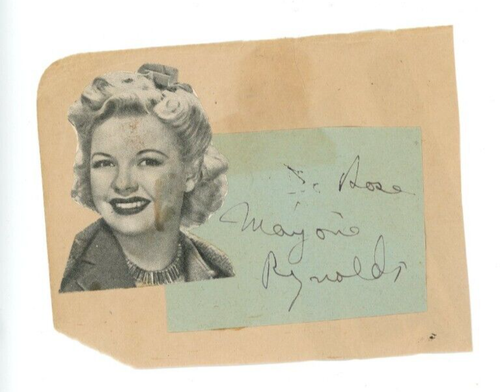 To Rose
Marjorie
Reynolds